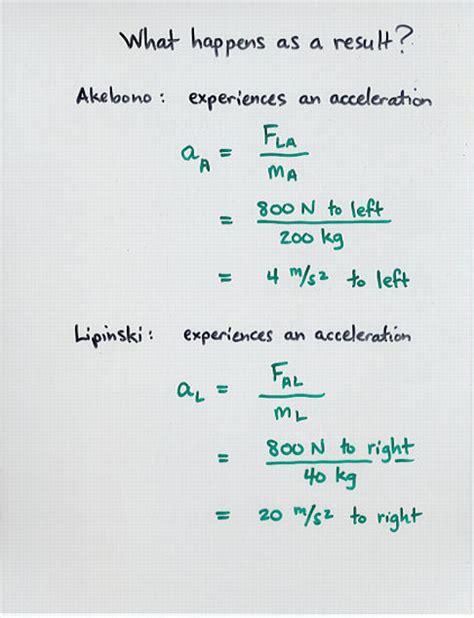 What happens as a result?
Akebono: experiences an acceleration
a_A = F_LA / m_A
= 800 N to left / 200 kg
= 4 m/s² to left
Lipinski: experiences an acceleration
a_L = F_AL / m_L
= 800 N to right / 40 kg
= 20 m/s² to right